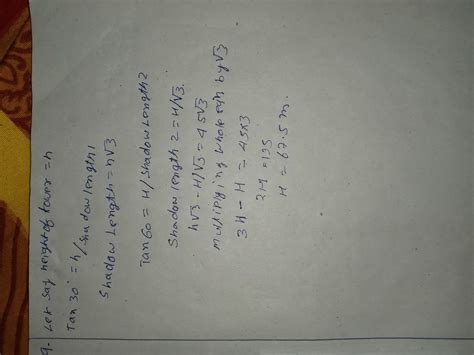 9. Let say height of tower = h
Tan 30° = h/shadow length 1
Shadow Length = h√3
Tan 60 = H/Shadow Length 2
Shadow length 2 = H/√3
h√3 - H/√3 = 45√3
Multiplying whole eqn by √3
3H - H = 45×3
2H = 135
H = 67.5 m.